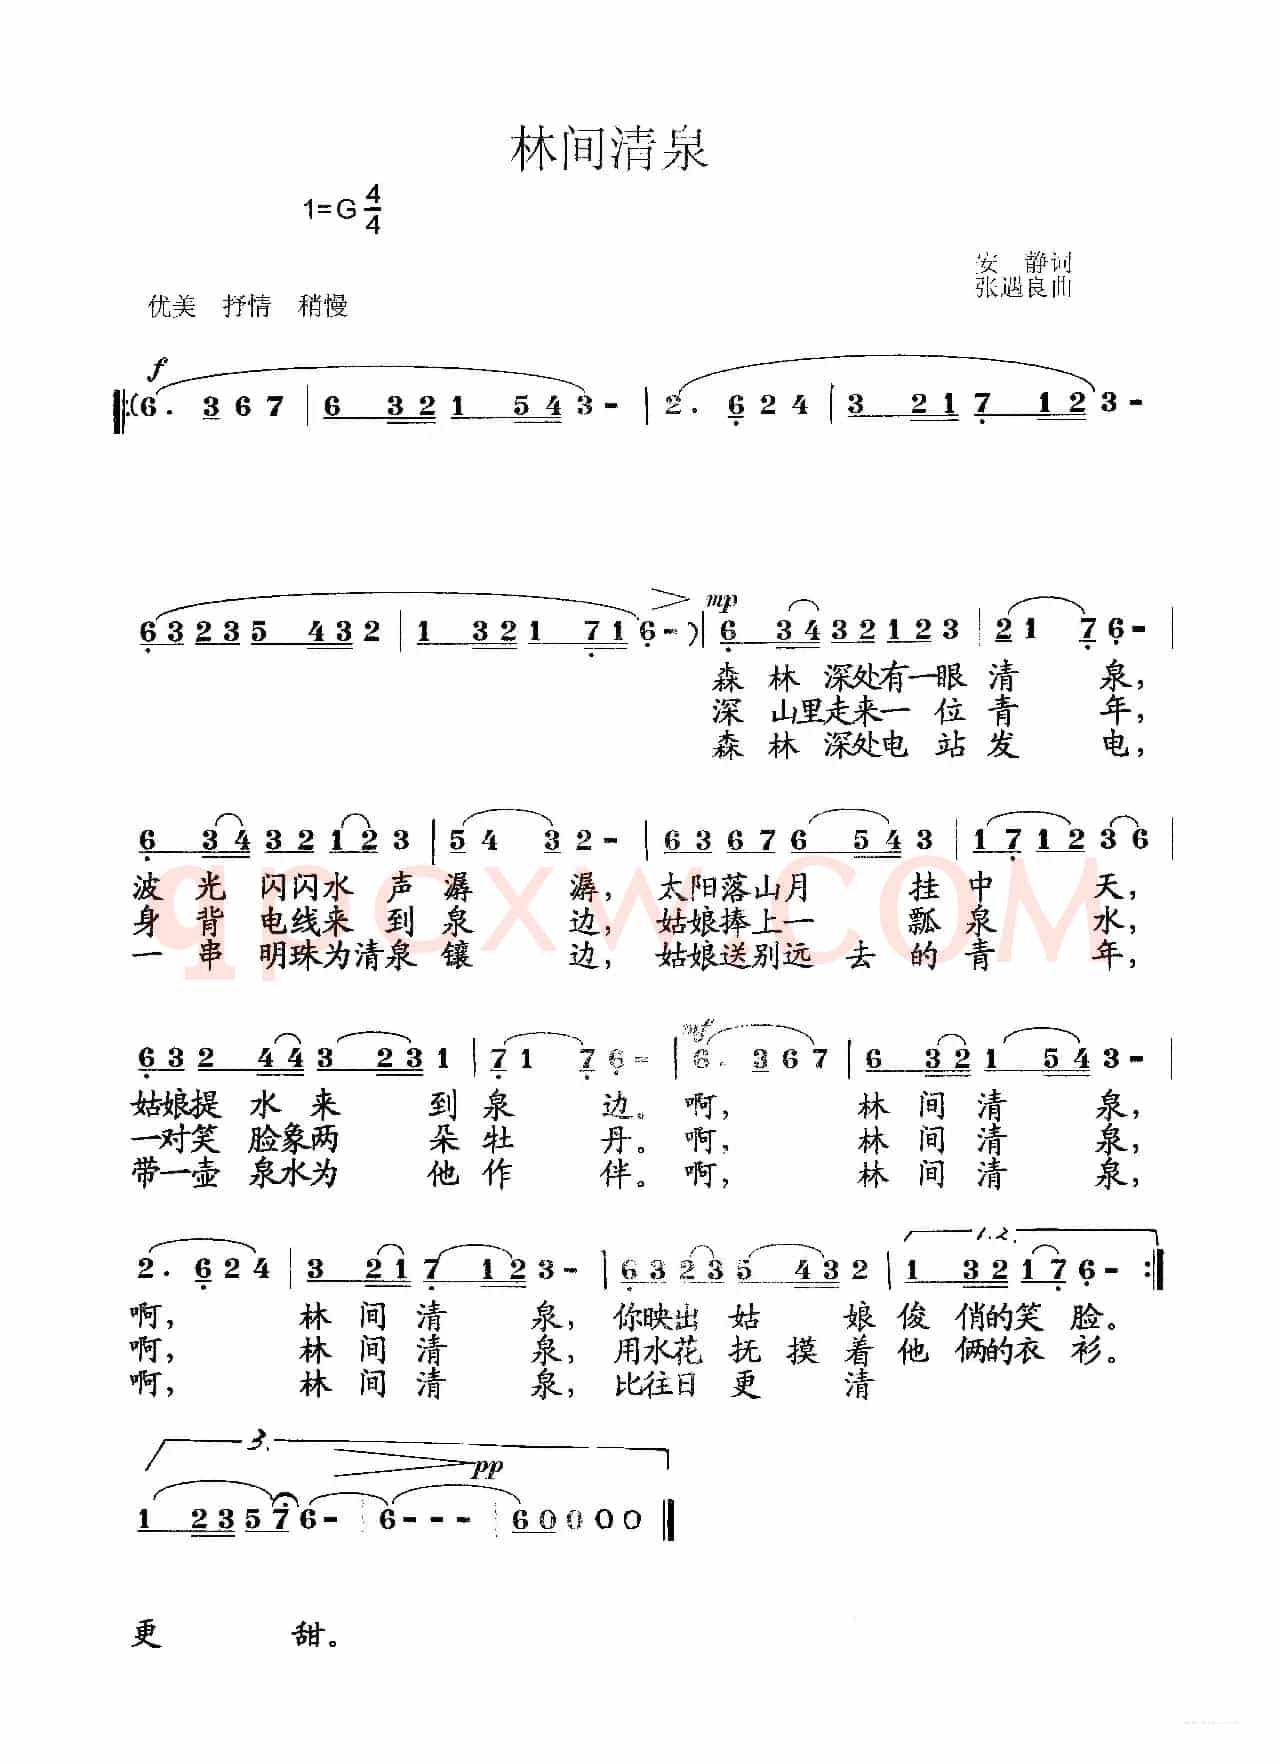 林间清泉
1=G 4/4
安 静词
张遇良曲
优美 抒情 稍慢
f
(6. 3 6 7 | 6 3 2 1 5 4 3 - | 2. 6 2 4 | 3 2 1 7 1 2 3 -
mp
6 3 2 3 5 4 3 2 | 1 3 2 1 7 1 6 - ) | 6 3 4 3 2 1 2 3 | 2 1 7 6 - |
森 林 深处有一眼 清 泉,
深 山里走来一 位 青 年,
森 林 深处电 站 发 电,
6 3 4 3 2 1 2 3 | 5 4 3 2 - | 6 3 6 7 6 5 4 3 | 1 7 1 2 3 6 |
波 光 闪闪水 声 潺 潺, 太阳落山月 挂 中 天,
身 背 电线来 到 泉 边, 姑娘捧上一 瓢 泉 水,
一 串 明珠为清泉 镶 边, 姑娘送别远 去 的 青 年,
qpcxw.COM
mf
6 3 2 4 4 3 2 3 1 | 7 1 7 6 - | 6. 3 6 7 | 6 3 2 1 5 4 3 - |
姑娘提 水 来 到 泉 边。 啊, 林 间 清 泉,
一对笑 脸象两 朵 牡 丹。 啊, 林 间 清 泉,
带一壶 泉水为 他 作 伴。 啊, 林 间 清 泉,
1.2.
2. 6 2 4 | 3 2 1 7 1 2 3 - | 6 3 2 3 5 4 3 2 | 1 3 2 1 7 6 - :|
啊, 林 间 清 泉, 你映出 姑 娘 俊 俏的笑 脸。
啊, 林 间 清 泉, 用水花 抚 摸 着 他 俩的衣 衫。
啊, 林 间 清 泉, 比往日 更 清
3.
pp
1 2 3 5 7 6 - | 6 - - - | 6 0 0 0 0 ||
更 甜。